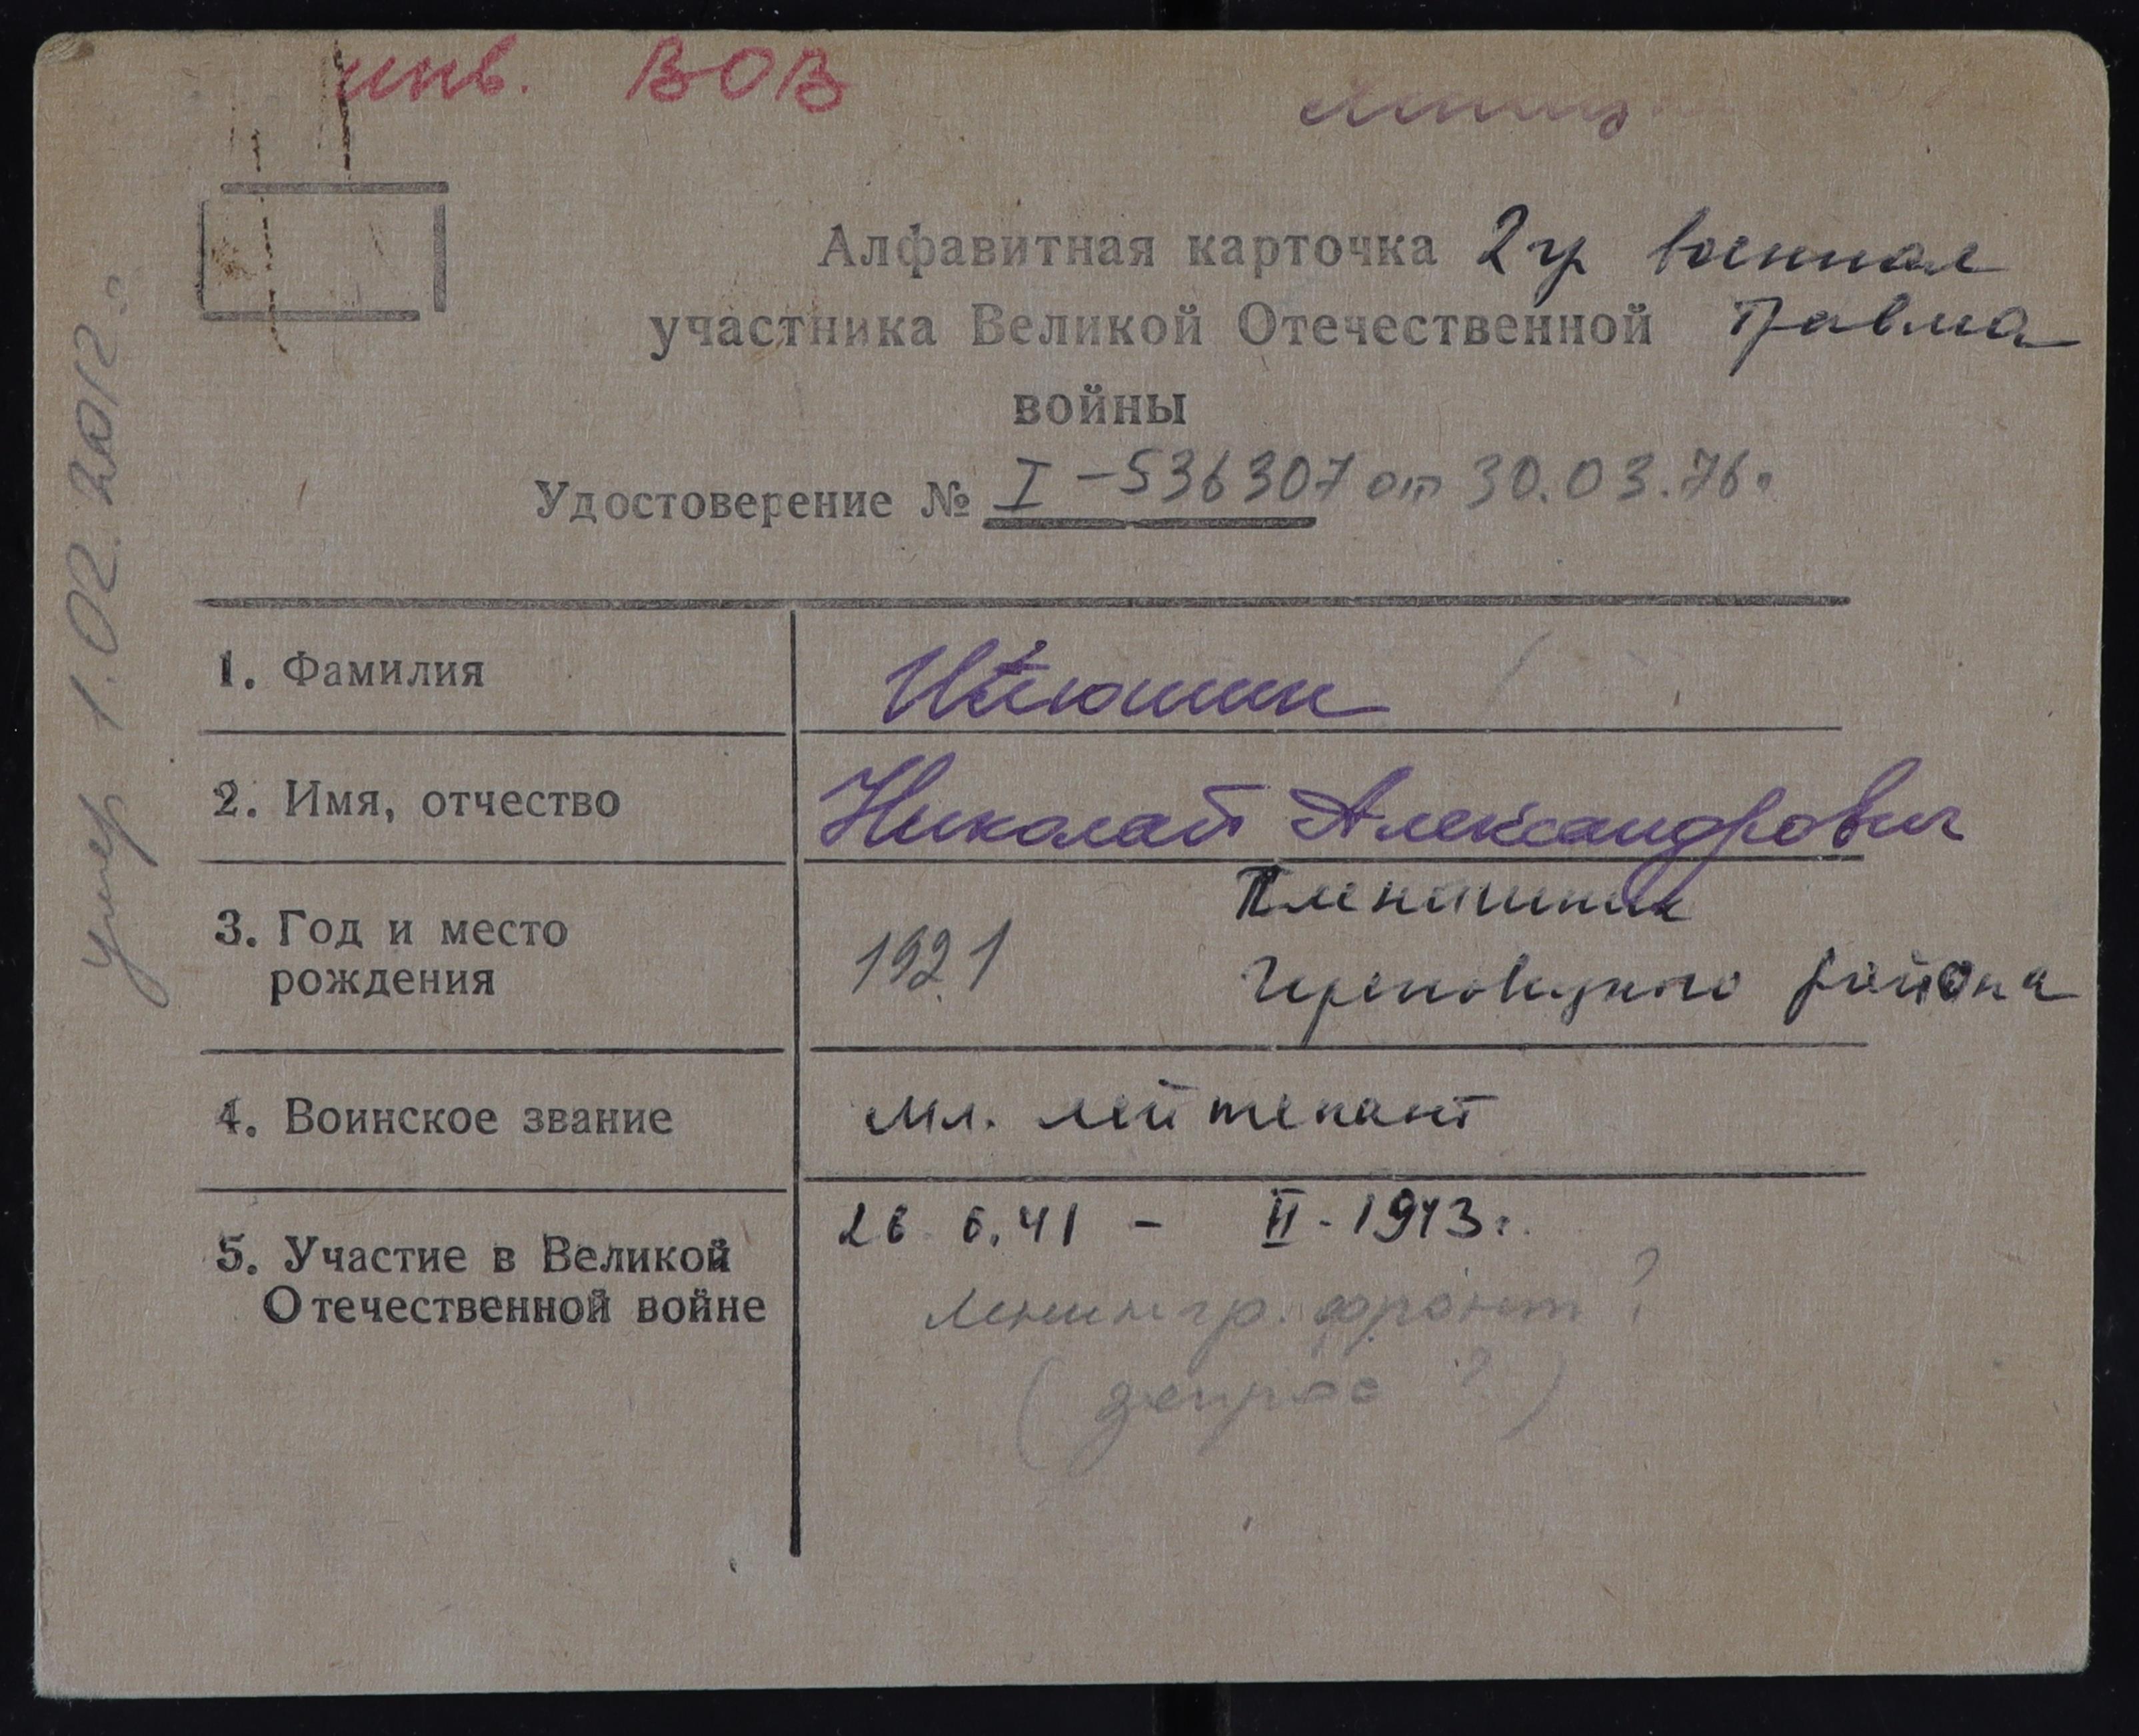 инв. ВОВ
Алфавитная карточка 2 гр военная
участника Великой Отечественной травма
войны
Удостоверение № I-536307 от 30.03.76г
умер 1.02.2012г.
1. Фамилия
2. Имя, отчество Николай Александрович
3. Год и место 1921
рождения Череповецкого района
4. Воинское звание мл. лейтенант
5. Участие в Великой 26.6.41 - II-1943г.
Отечественной войне Ленингр. фронт?
(запрос?)